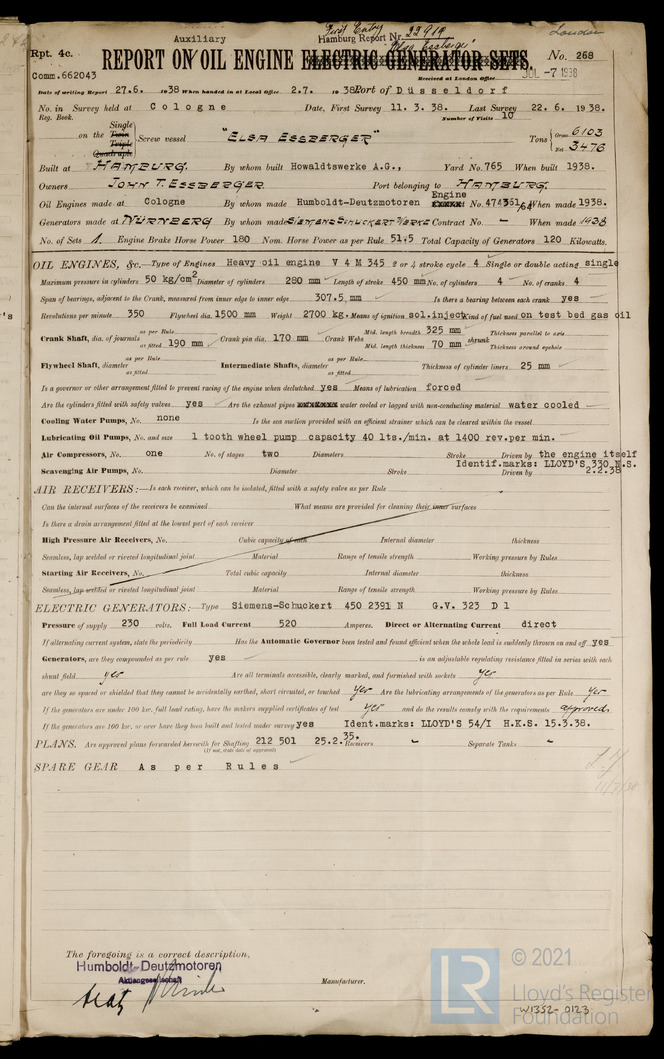 First Entry
Auxiliary Hamburg Report Nr. 22919 London
"Elsa Essberger"
Rpt. 4c. REPORT ON OIL ENGINE ELECTRIC GENERATOR SETS. No. 268
Comm. 662043 Received at London Office JUL -7 1938
Date of writing Report 27.6. 1938 When handed in at Local Office 2.7. 1938 Port of Düsseldorf
No. in Survey held at Cologne Date, First Survey 11. 3. 38. Last Survey 22. 6. 1938.
Reg. Book. Number of Visits 10
on the Single Twin Triple Quadruple Screw vessel "ELSA ESSBERGER" Tons Gross 6103 Net 3476
Built at HAMBURG. By whom built Howaldtswerke A.G., Yard No. 765 When built 1938.
Owners JOHN T. ESSBERGER. Port belonging to HAMBURG.
Oil Engines made at Cologne By whom made Humboldt-Deutzmotoren Engine No. 474361/64 When made 1938.
Generators made at NÜRNBERG By whom made SIEMENS SCHUCKERT WERKE Contract No. - When made 1938
No. of Sets 1. Engine Brake Horse Power 180 Nom. Horse Power as per Rule 51,5 Total Capacity of Generators 120 Kilowatts.
OIL ENGINES, &c.—Type of Engines Heavy oil engine V 4 M 345 2 or 4 stroke cycle 4 Single or double acting single
Maximum pressure in cylinders 50 kg/cm2 Diameter of cylinders 280 mm Length of stroke 450 mm No. of cylinders 4 No. of cranks 4
Span of bearings, adjacent to the Crank, measured from inner edge to inner edge 307.5 mm Is there a bearing between each crank yes
Revolutions per minute 350 Flywheel dia. 1500 mm Weight 2700 kg. Means of ignition sol.inject. Kind of fuel used on test bed gas oil
Crank Shaft, dia. of journals as per Rule as fitted 190 mm Crank pin dia. 170 mm Crank Webs Mid. length breadth 325 mm Mid. length thickness 70 mm shrunk Thickness parallel to axis Thickness around eyehole
Flywheel Shaft, diameter as per Rule as fitted Intermediate Shafts, diameter as per Rule as fitted Thickness of cylinder liners 25 mm
Is a governor or other arrangement fitted to prevent racing of the engine when declutched yes Means of lubrication forced
Are the cylinders fitted with safety valves yes Are the exhaust pipes water cooled or lagged with non-conducting material water cooled
Cooling Water Pumps, No. none Is the sea suction provided with an efficient strainer which can be cleared within the vessel
Lubricating Oil Pumps, No. and size 1 tooth wheel pump capacity 40 lts./min. at 1400 rev.per min.
Air Compressors, No. one No. of stages two Diameters Stroke Driven by the engine itself
Identif.marks: LLOYD'S 330 N.S.
Scavenging Air Pumps, No. Diameter Stroke Driven by 2.2.38
AIR RECEIVERS:—Is each receiver, which can be isolated, fitted with a safety valve as per Rule
Can the internal surfaces of the receivers be examined What means are provided for cleaning their inner surfaces
Is there a drain arrangement fitted at the lowest part of each receiver
High Pressure Air Receivers, No. Cubic capacity of each Internal diameter thickness
Seamless, lap welded or riveted longitudinal joint Material Range of tensile strength Working pressure by Rules
Starting Air Receivers, No. Total cubic capacity Internal diameter thickness
Seamless, lap welded or riveted longitudinal joint Material Range of tensile strength Working pressure by Rules
ELECTRIC GENERATORS:—Type Siemens-Schuckert 450 2391 N G.V. 323 D 1
Pressure of supply 230 volts. Full Load Current 520 Amperes. Direct or Alternating Current direct
If alternating current system, state the periodicity Has the Automatic Governor been tested and found efficient when the whole load is suddenly thrown on and off yes
Generators, are they compounded as per rule yes is an adjustable regulating resistance fitted in series with each
shunt field yes Are all terminals accessible, clearly marked, and furnished with sockets yes
are they so spaced or shielded that they cannot be accidentally earthed, short circuited, or touched yes Are the lubricating arrangements of the generators as per Rule yes
If the generators are under 100 kw. full load rating, have the makers supplied certificates of test yes and do the results comply with the requirements approved.
If the generators are 100 kw. or over have they been built and tested under survey yes Ident.marks: LLOYD'S 54/I H.K.S. 15.3.38.
PLANS. Are approved plans forwarded herewith for Shafting 212 501 25.2.35. Receivers - Separate Tanks -
(If not, state date of approval)
SPARE GEAR As per Rules
The foregoing is a correct description,
Humboldt-Deutzmotoren
Aktiengesellschaft
Manufacturer.
LR © 2021
Lloyd's Register
Foundation
W1352-0123